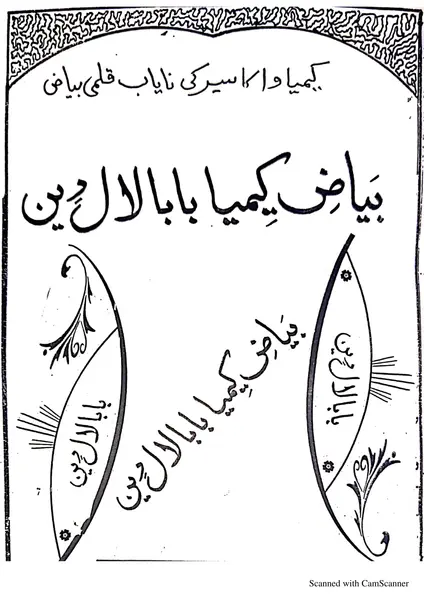 کیمیا و اکاسیر کی نایاب قلمی بیاض
بَیاضِ کِیمیا بابا لال دِین
بَیاضِ کِیمیا بابا لال دِین
بابا لال دِین
بابا لال دِین
Scanned with CamScanner